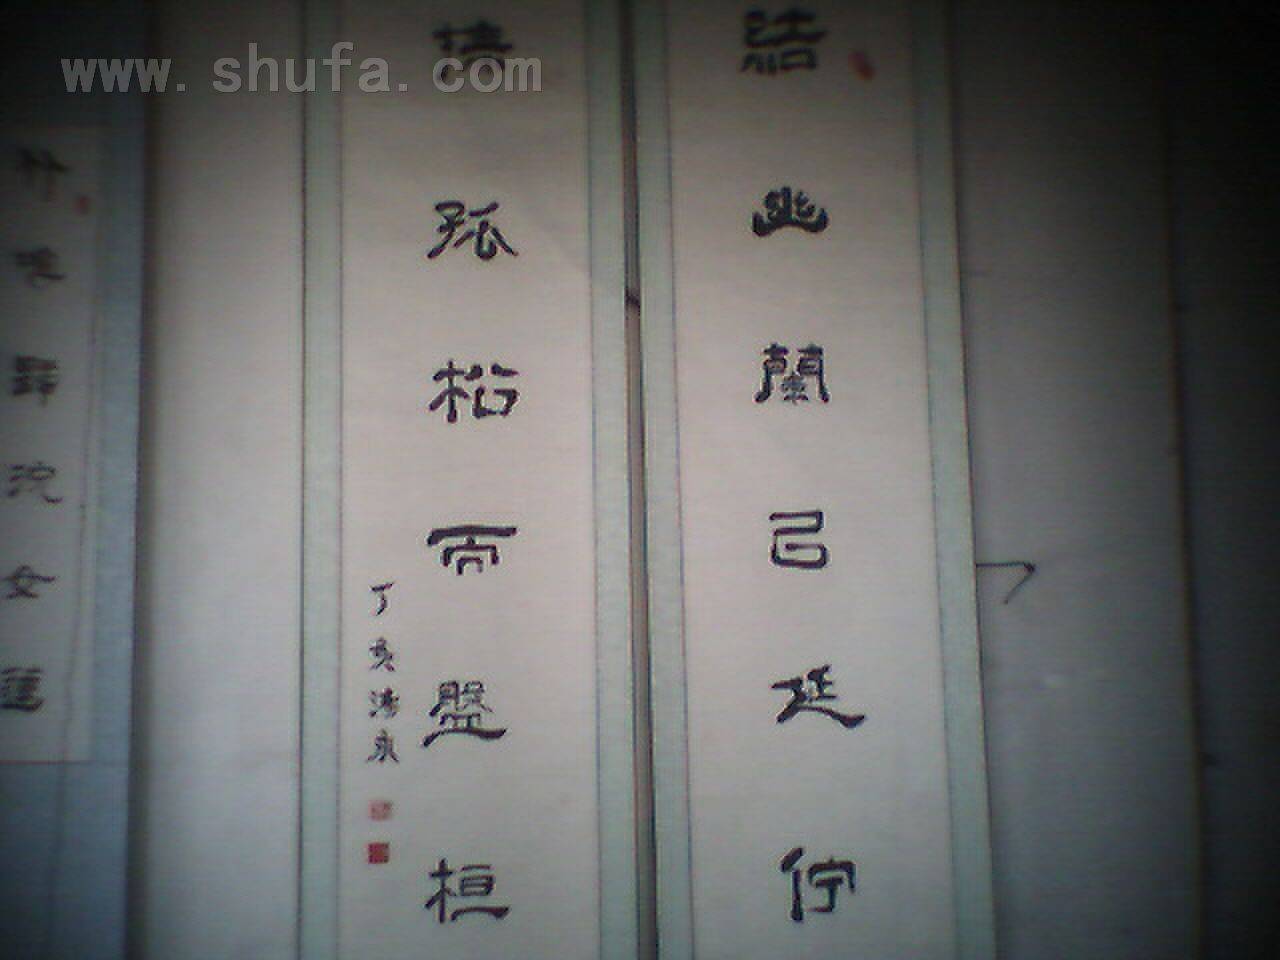 www.shufa.com
結幽蘭㠯延佇
撫孤松而盤桓
丁亥
竹喧歸浣女蓮